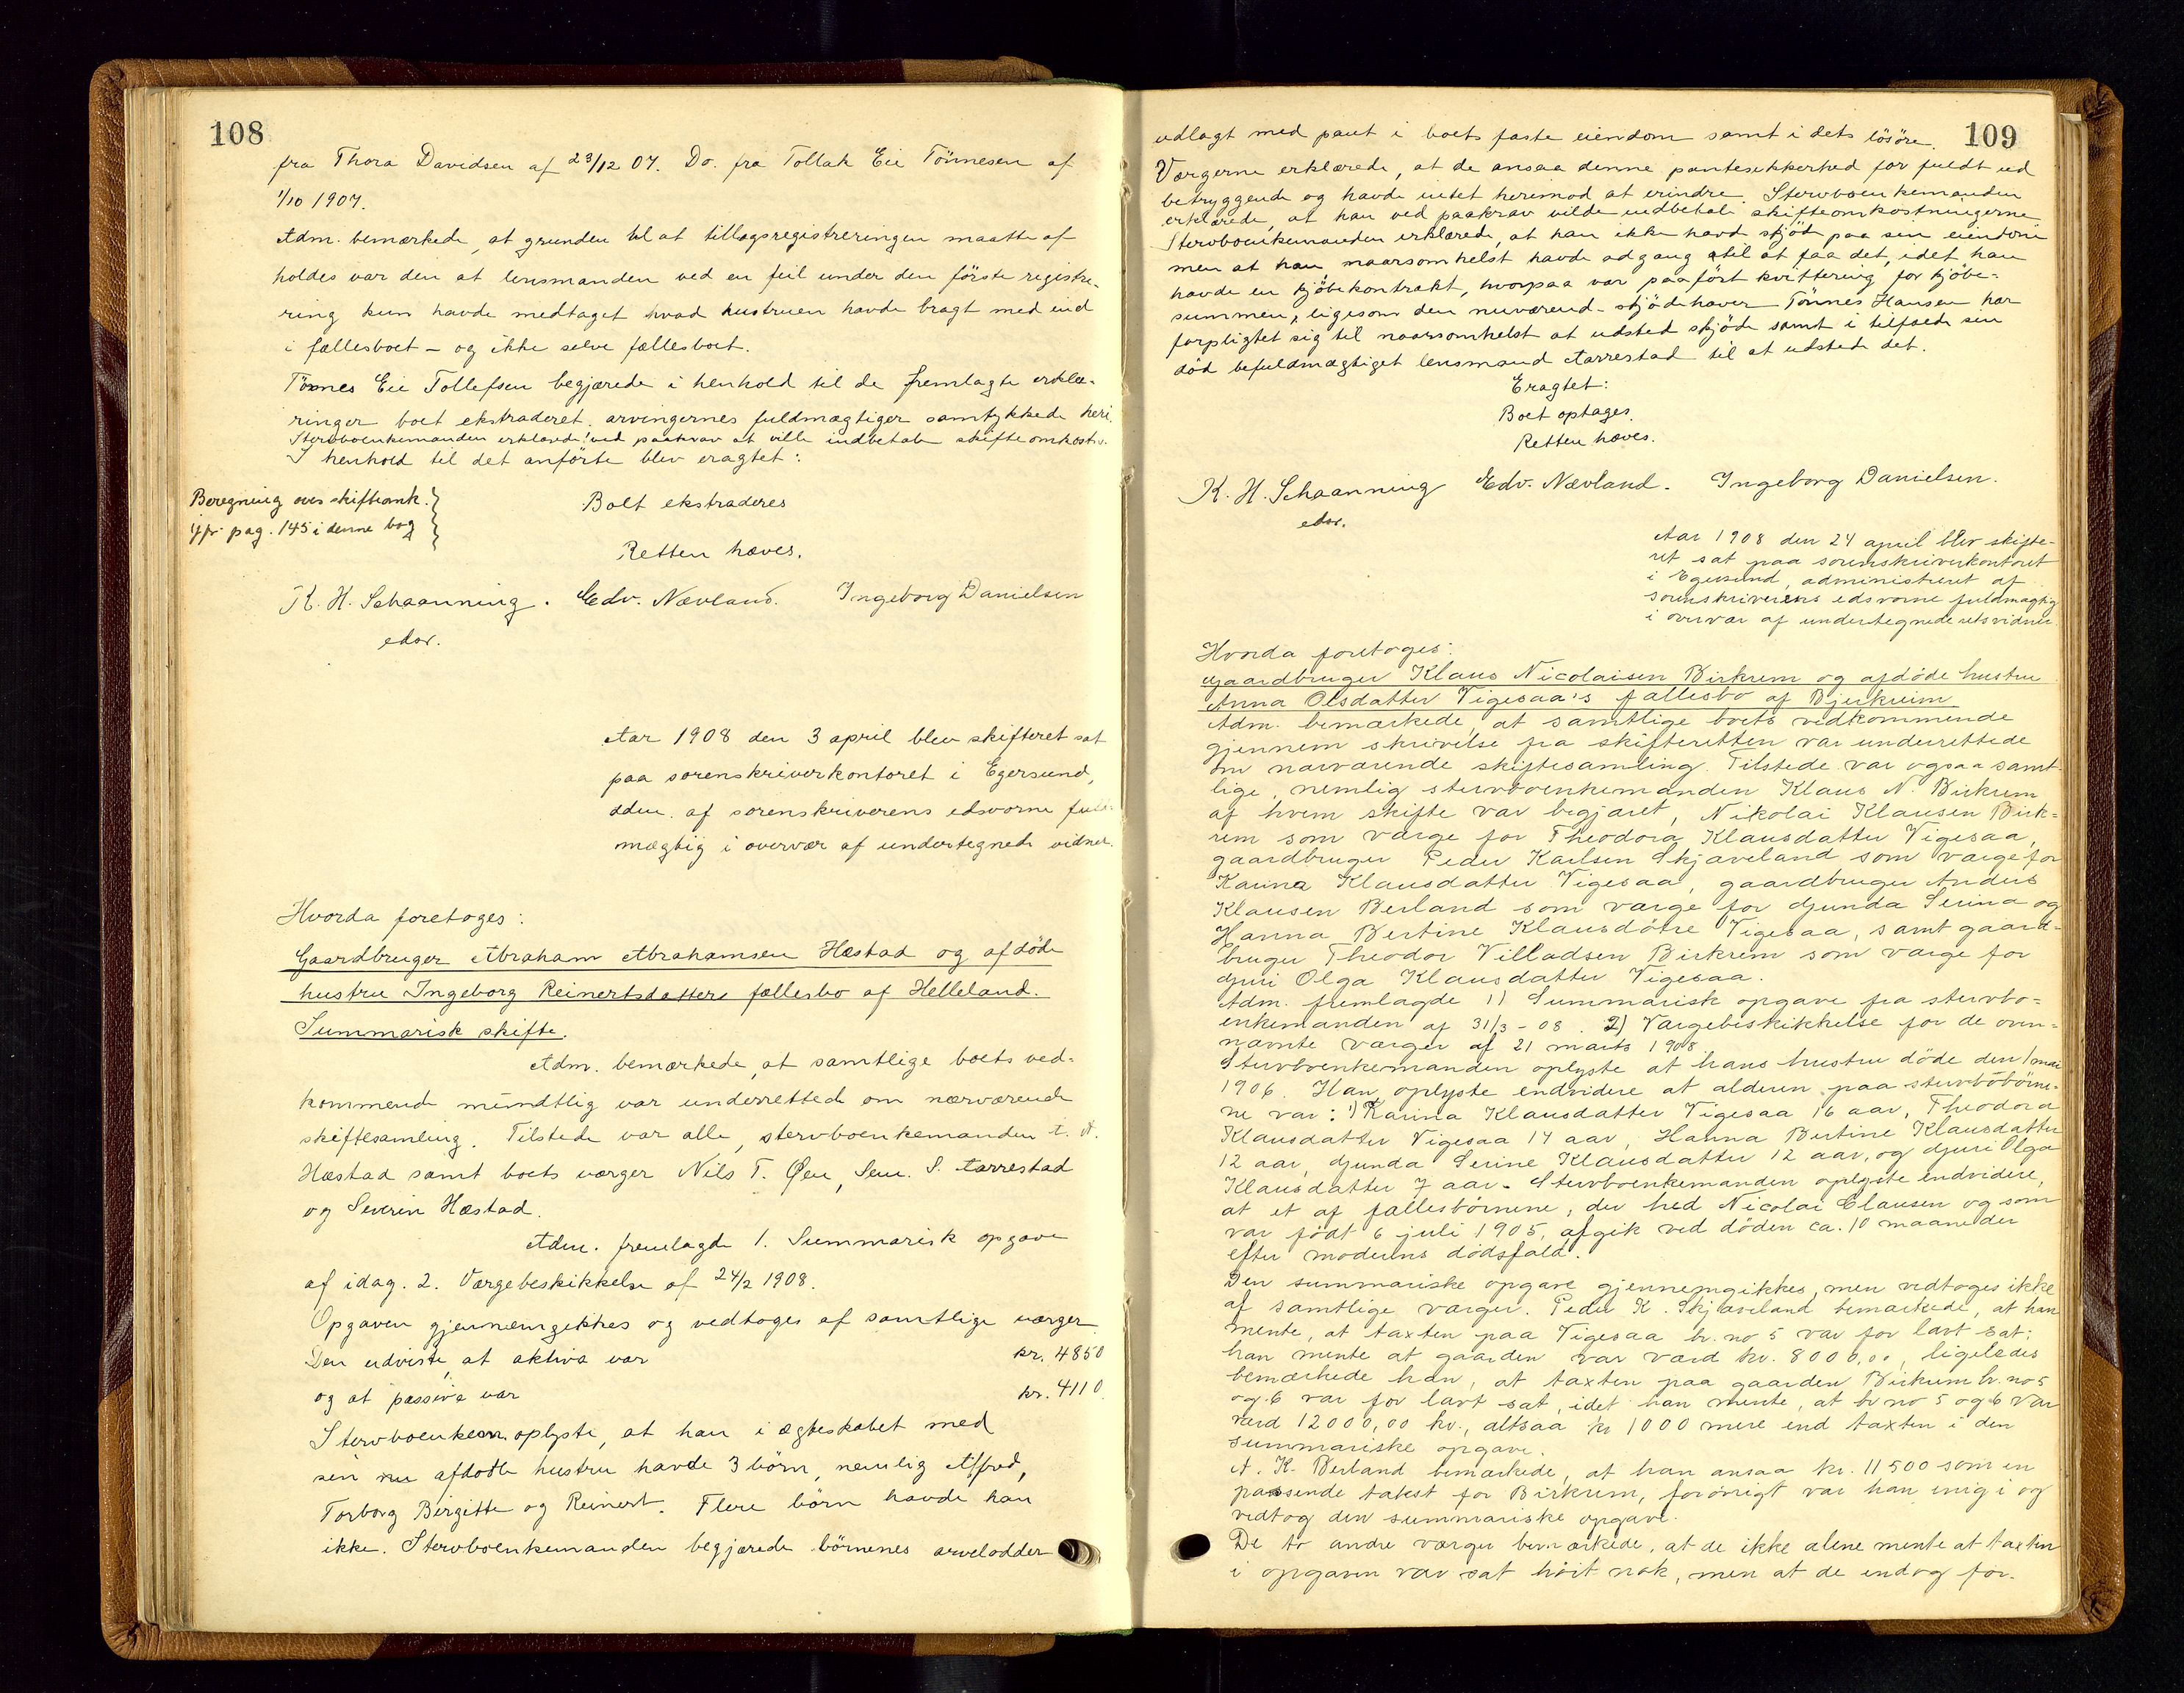 108
fra Thora Davidsen af 23/12 07. Do. fra Tollak Eie Tönnesen af
1/10 1907.
Adm. bemærkede, at grunden til at tillægsregistreringen maatte af
holdes var den at lensmanden ved en feil under den förste registre-
ring kun havde medtaget hvad hustruen havde bragt med ind
i fællesboet – og ikke selve fællesboet.
Tönnes Eie Tollefsen begjærede i henhold til de fremlagte erklæ-
ringer boet ekstraderet. arvingernes fuldmægtiger samtykkede heri.
Stervboenkemanden erklærede ved paakrav at ville indbetale skifteomkostn.
I henhold til det anförte blev eragtet:
Beregning over skifteomk.
jfr pag. 145 i denne bog
Boet ekstraderes
Retten hæves.
K. H. Schaanning. Edv. Nævland. Ingeborg Danielsen
edsv.
Aar 1908 den 3 april blev skifteret sat
paa sorenskriverkontoret i Egersund,
adm. af sorenskriverens edsvorne fuld-
mægtig i overvær af undertegnede vidner.
Hvorda foretoges:
Gaardbruger Abraham Abrahamsen Hæstad og afdöde
hustru Ingeborg Reinertsdatters fællesbo af Helleland.
Summarisk skifte.
Adm. bemærkede, at samtlige boets ved-
kommende mundtlig var underrettede om nærværende
skiftesamling. Tilstede var alle, stervboenkemanden A. A.
Hæstad samt boets værger Nils T. Øen, Sem. S. Aarrestad
og Severin Hæstad.
Adm. fremlagde 1. Summarisk opgave
af idag. 2. Værgebeskikkelse af 24/2 1908.
Opgaven gjennemgikkes og vedtoges af samtlige værger.
Den udviste, at aktiva var kr. 4850
og at passiva var kr. 4110.
Stervboenkem. oplyste, at han i ægteskabet med
sin nu afdöde hustru havde 3 börn, nemlig Alfred,
Torborg Birgitte og Reinert. Flere börn havde han
ikke. Stervboenkemanden begjærede börnenes arvelodder
109
udlagt med pant i boets faste eiendom samt i dets lösöre.
Værgerne erklærede, at de ansaa denne pantesikkerhed for fuldt ud
betryggende og havde intet herimod at erindre. Stervboenkemanden
erklærede, at han ved paakrav vilde indbetale skifteomkostningerne.
Stervboenkemanden erklærede, at han ikke havde skjöde paa sin eiendom
men at han naarsomhelst havde adgang til at faa det, idet han
havde en kjöbekontrakt, hvorpaa var paafört kvittering for kjöbe-
summen, ligesom den nuværende skjödehaver Tönnes Hansen har
forpligtet sig til naarsomhelst at udstede skjöde samt i tilfælde sin
död befuldmægtiget lensmand Aarrestad til at udstede det.
Eragtet:
Boet optages.
Retten hæves.
K. H. Schaanning Edv. Nævland. Ingeborg Danielsen.
edsv.
Aar 1908 den 24 april blev skifte-
ret sat paa sorenskriverkontoret
i Egersund, administreret af
sorenskriverens edsvorne fuldmægtig
i overvær af undertegnede retsvidner
Hvorda foretoges:
Gaardbruger Klaus Nicolaisen Birkrem og afdöde hustru
Anna Olsdatter Vigesaa's fællesbo af Bjerkreim
Adm. bemærkede, at samtlige boets vedkommende
gjennem skrivelse fra skifteretten var underrettede
om nærværende skiftesamling. Tilstede var ogsaa samt-
lige, nemlig stervboenkemanden Klaus N. Birkrem
af hvem skifte var begjæret, Nikolai Klausen Birk-
rem som værge for Theodora Klausdatter Vigesaa,
gaardbruger Peder Karlsen Skjæveland som værge for
Karina Klausdatter Vigesaa, gaardbruger Anders
Klausen Berland som værge for Gunda Serina og
Hanna Bertine Klausdötre Vigesaa, samt gaard-
bruger Theodor Villadsen Birkrem som værge for
Guri Olga Klausdatter Vigesaa.
Adm. fremlagde 1) Summarisk opgave fra stervbo-
enkemanden af 31/3 - 08. 2) Værgebeskikkelse for de oven-
nævnte værger af 21 marts 1908.
Stervboenkemanden oplyste at hans hustru döde den 1 mai
1906. Han oplyste endvidere at alderen paa stervbobörne-
ne var: 1) Karina Klausdatter Vigesaa 16 aar, Theodora
Klausdatter Vigesaa 14 aar, Hanna Bertine Klausdatter
12 aar, Gunda Serine Klausdatter 12 aar, og Guri Olga
Klausdatter 7 aar. Stervboenkemanden oplyste endvidere,
at et af fællesbörnene, der hed Nicolai Clausen og som
var födt 6 juli 1905, afgik ved döden ca. 10 maaneder
efter moderens dödsfald.
Den summariske opgave gjennemgikkes, men vedtoges ikke
af samtlige værger. Peder K. Skjæveland bemærkede, at han
mente, at taxten paa Vigesaa br. no 5 var for lavt sat;
han mente at gaarden var værd kr. 8000,00, ligeledes
bemærkede han, at taxten paa gaarden Birkrem br. no 5
og 6 var for lavt sat, idet han mente, at br no 5 og 6 var
værd 12000,00 kr., altsaa kr 1000 mere end taxten i den
summariske opgave.
A. K. Berland bemærkede, at han ansaa kr. 11500 som en
passende takst for Birkrem, forövrigt var han enig i og
vedtog den summariske opgave.
De to andre værger bemærkede, at de ikke alene mente at taxten
i opgaven var sat höit nok, men at de endog for-